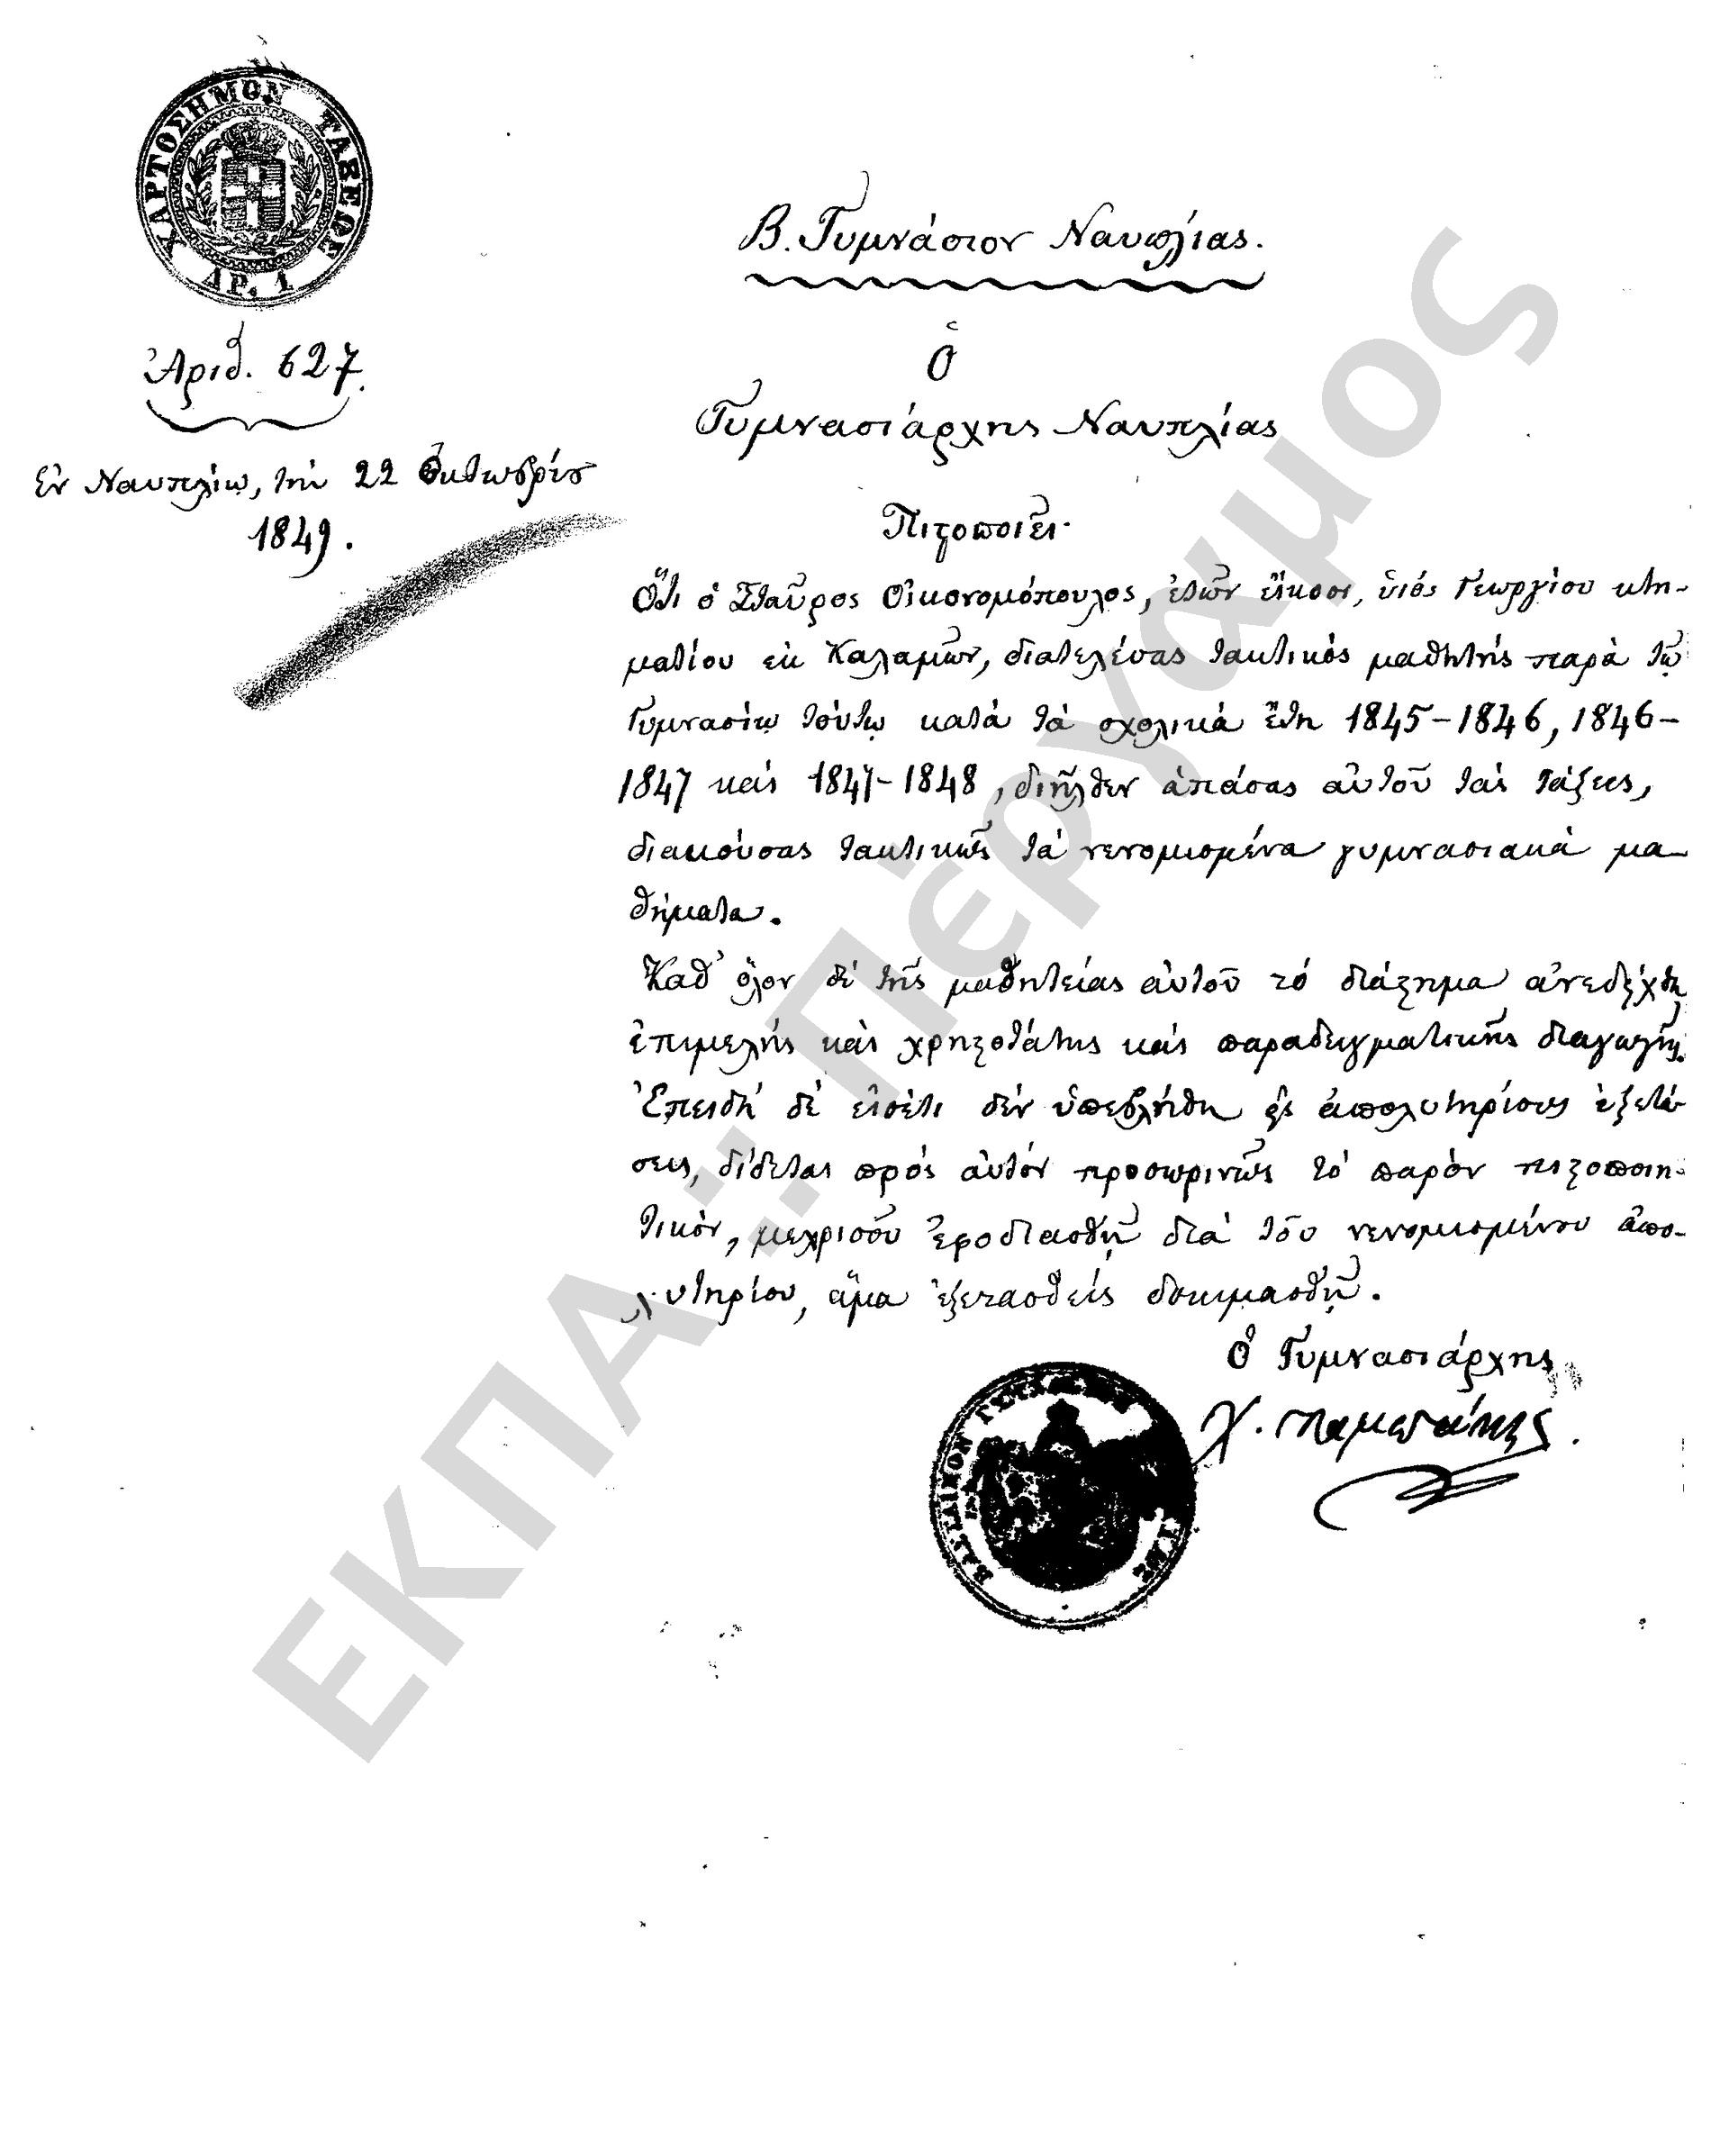 ΧΑΡΤΟΣΗΜΟΝ ΤΑΞΕΩΣ
ΑΡ. 1
Ἀριθ. 627.
Ἐν Ναυπλίῳ, τὴν 22 Ὀκτωβρίου
1849.
Β. Γυμνάσιον Ναυπλίας.
Ὁ
Γυμνασιάρχης Ναυπλίας
Πιστοποιεῖ·
Ὅτι ὁ Σταῦρος Οἰκονομόπουλος, ἐτῶν εἴκοσι, ὑιός Γεωργίου κτη-
ματίου ἐκ Καλαμῶν, διατελέσας τακτικὸς μαθητὴς παρὰ τῷ
Γυμνασίῳ τούτῳ κατὰ τὰ σχολικὰ ἔτη 1845-1846, 1846-
1847 καὶ 1847-1848, διῆλθεν ἁπάσας αὐτοῦ τὰς τάξεις,
διακούσας τακτικῶς τὰ νενομισμένα γυμνασιακὰ μα-
θήματα.
Καθ' ὅλον δὲ τῆς μαθητείας αὐτοῦ τὸ διάστημα ἀνεδείχθη
ἐπιμελὴς καὶ χρηστοτάτης καὶ παραδειγματικῆς διαγωγῆς.
Ἐπειδὴ δὲ εἰσέτι δὲν ὑπεβλήθη εἰς ἀπολυτηρίους ἐξετά-
σεις, δίδεται πρὸς αὐτὸν προσωρινῶς τὸ παρὸν πιστοποιη-
τικὸν, μεχρισοῦ ἐφοδιασθῇ διὰ τοῦ νενομισμένου ἀπο-
λυτηρίου, ἅμα ἐξετασθεὶς δοκιμασθῇ.
Ὁ Γυμνασιάρχης
Χ. Παμπούκης.
ΒΑΣΙΛΙΚΟΝ
ΕΚΠΑ .. Πέργαμος